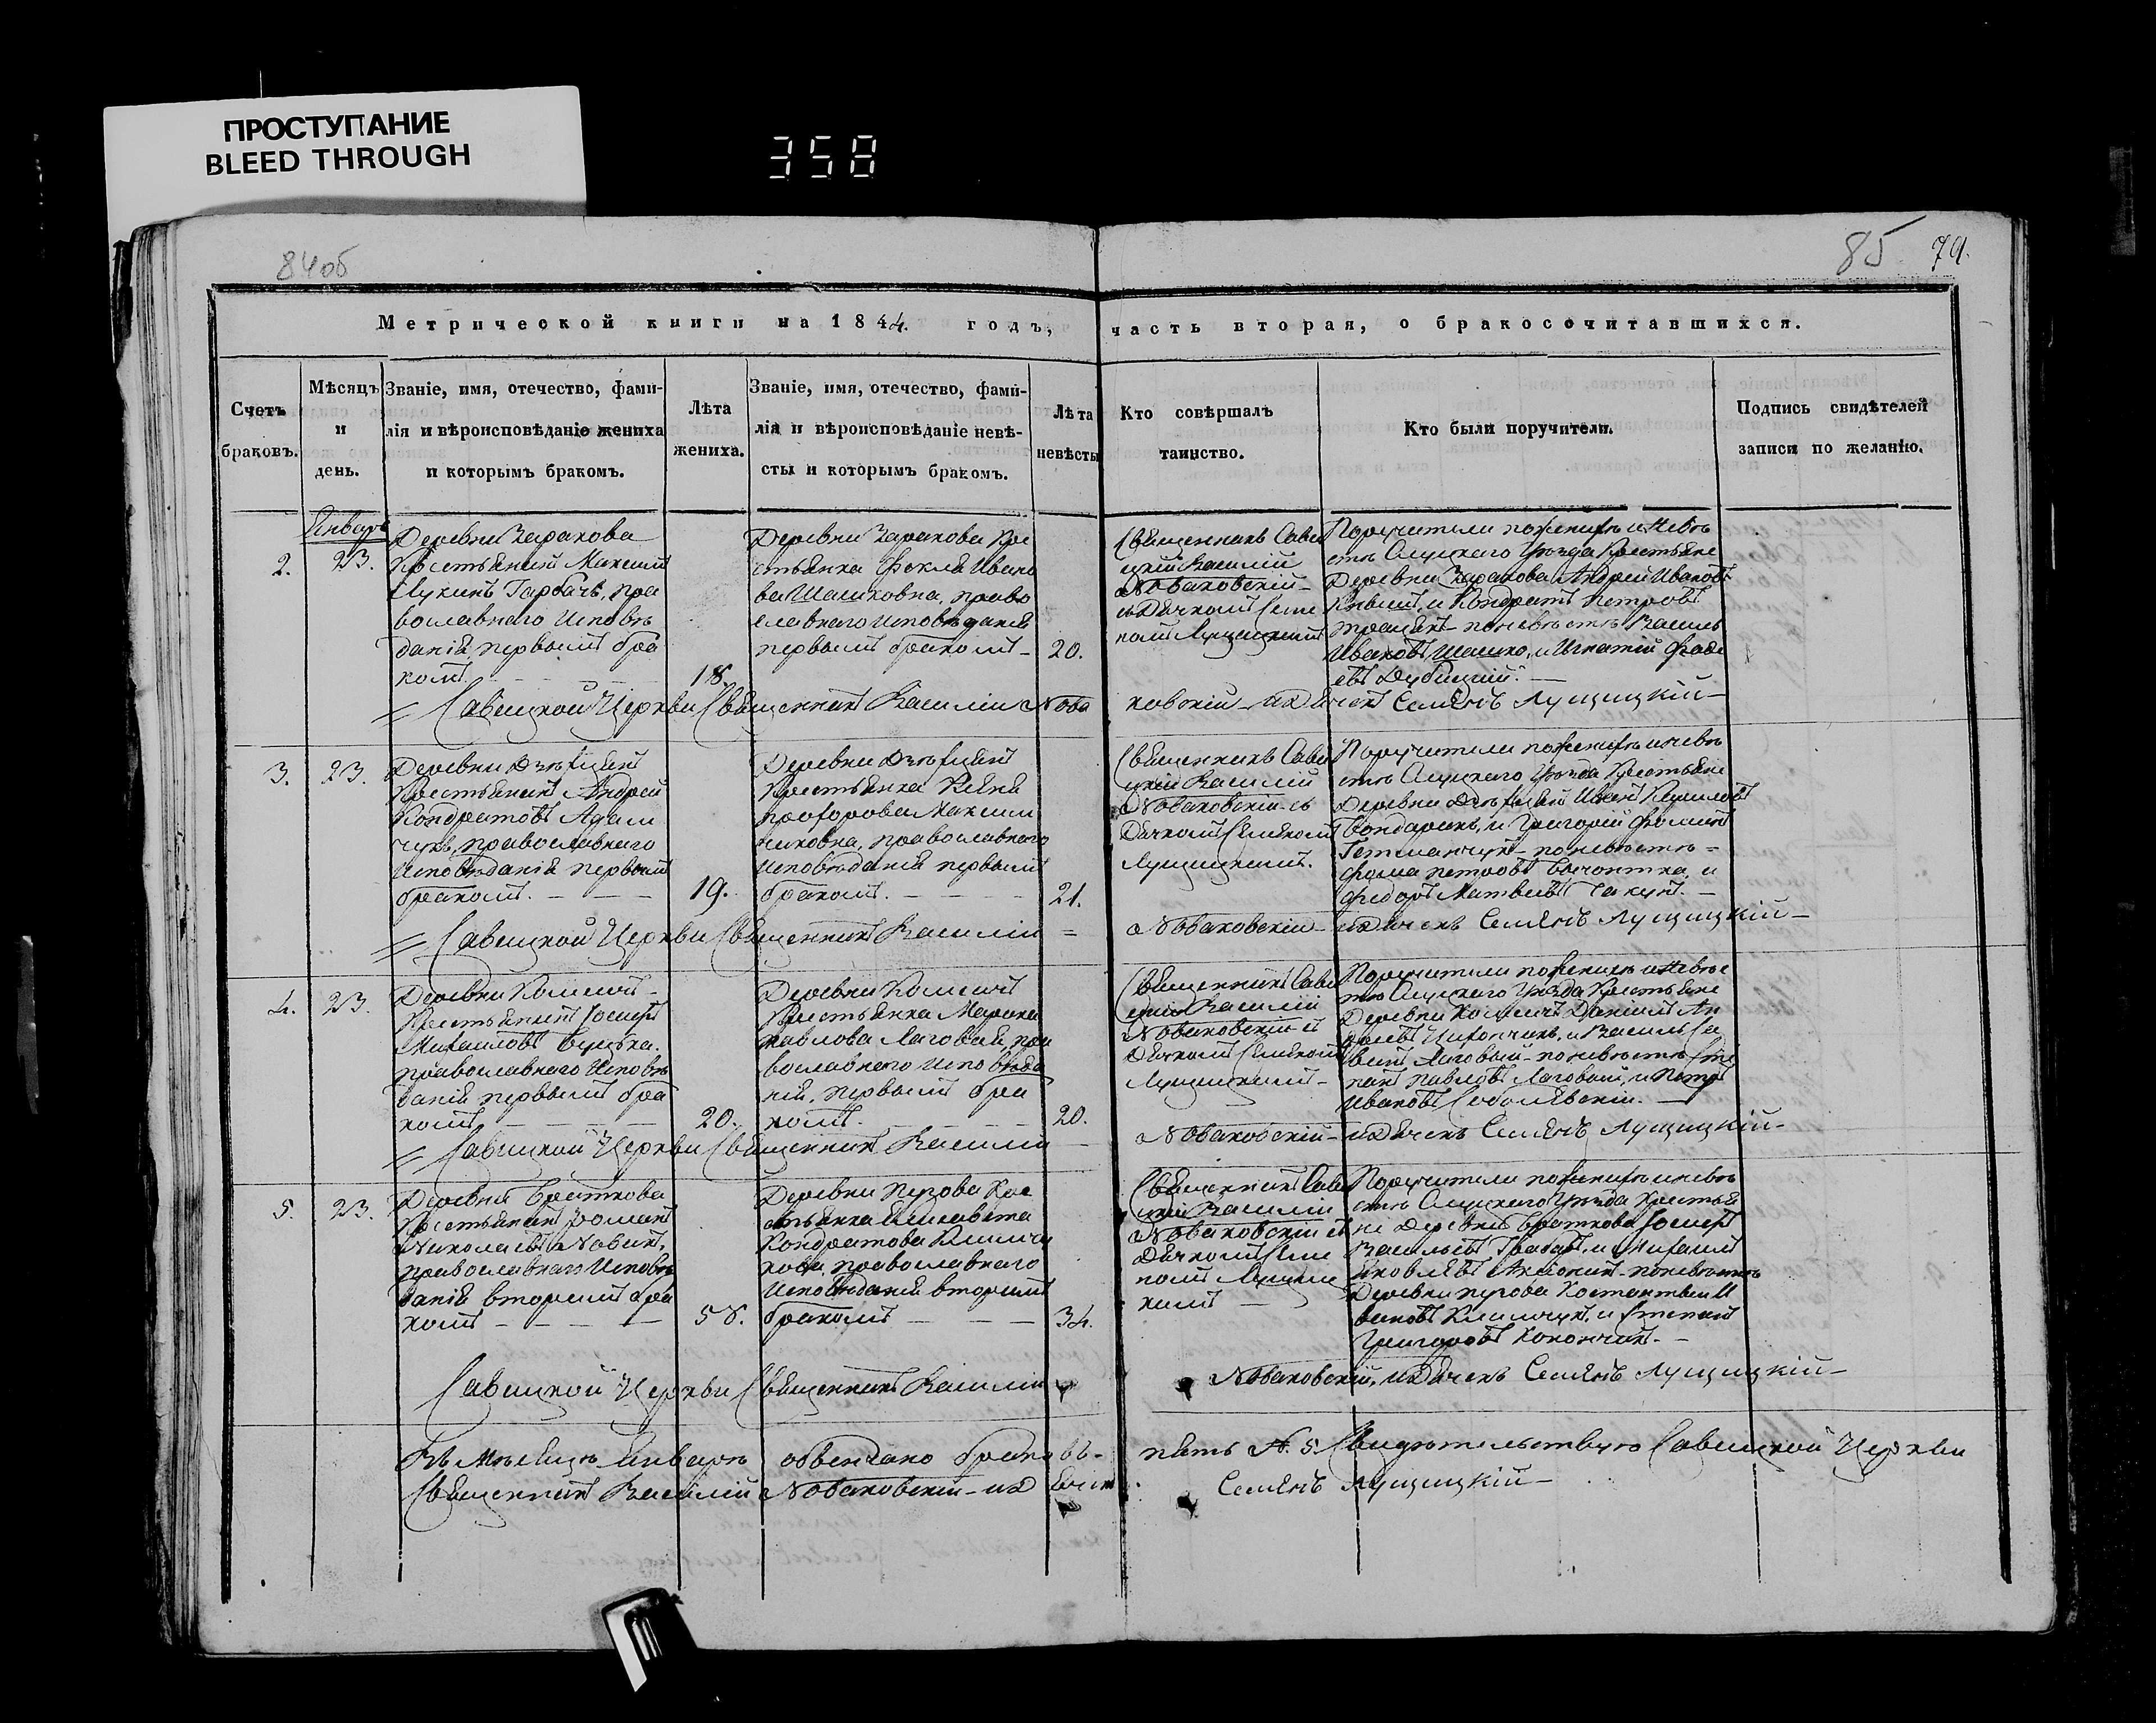 ПРОСТУПАНИЕ
BLEED THROUGH
358
84об
85
79.
Метрической книги на 1844. годъ, часть вторая, о бракосочитавшихся.
Счетъ
браковъ.
Мѣсяцъ
и
день.
Званіе, имя, отечество, фами-
лія и вѣроисповѣданіе жениха
и которымъ бракомъ.
Лѣта
жениха.
Званіе, имя, отечество, фами-
лія и вѣроисповѣданіе невѣ-
сты и которымъ бракомъ.
Лѣта
невѣсты
Кто совѣршалъ
таинство.
Кто были поручители.
Подпись свидѣтелей
записи по желанію.
Январь
2.
23.
Деревни Заракова
Крестьянинъ Максимъ
Лукинъ Гарбачъ, пра
вославнаго Исповѣ
данія первымъ бра
комъ.
18.
Деревни Заракова Кре
стьянка Фекла Ивано
ва Шашковна, право
славнаго исповѣданія
первымъ бракомъ
20.
Священникъ Сави
цкій Василій
Новаковскій
съ Дячкомъ Семе
номъ Лущицкимъ
Поручители по женихѣ и невѣ
стѣ Слуцкаго Уѣзда Крестьяне
Деревни Заракова Андрей Ивановъ
и Кондратъ Петровъ
по невѣстѣ Василь
Ивановъ Шашко, и Игнатій Фаде
евъ Дубицкій.
Савицкой Церкви Священникъ Василій Нова
ковскій и Дячекъ Семенъ Лущицкій
3.
23.
Деревни
Крестьянинъ Андрей
Кондратовъ Адам
чукъ, православнаго
Исповѣданія первымъ
бракомъ.
19.
Деревни
Крестьянка
Прохорова Максим
чиковна, православнаго
Исповѣданія первымъ
бракомъ.
21.
Священникъ Сави
цкій Василій
Новаковскій съ
Дячкомъ Семеномъ
Лущицкимъ.
Поручители по женихѣ и невѣ
стѣ Слуцкаго Уѣзда Крестьяне
Деревни Иванъ
Бондарикъ, и Григорій Фоминъ
Гетманчукъ по невѣстѣ
Фома Петровъ и
Федоръ Матвѣевъ
Савицкой Церкви Священникъ Василій
Новаковскій и Дячекъ Семенъ Лущицкій
4.
23.
Деревни
Крестьянинъ Іосифъ
Михаиловъ
православнаго Исповѣ
данія первымъ бра
комъ
20.
Деревни
Крестьянка Марина
Павлова Лаговая, пра
вославнаго исповѣда
нія, первымъ бра
комъ.
20.
Священникъ Сави
цкій Василій
Новаковскій съ
Дячкомъ Семеномъ
Лущицкимъ
Поручители по женихѣ и невѣс
тѣ Слуцкаго Уѣзда Крестьяне
Деревни Даніилъ
и Василь Са
Лаговый по невѣстѣ Сте
панъ Павловъ Лаговый, и Петръ
Ивановъ Соболевскій.
Савицкой Церкви Священникъ Василій
Новаковскій и Дячекъ Семенъ Лущицкій
5.
23.
Деревни Браткова
Крестьянинъ Романъ
Николаевъ Новикъ,
православнаго Исповѣ
данія вторымъ бра
комъ
58.
Деревни Пузова Кре
стьянка Елисавета
Кондратова Климчу
кова православнаго
Исповѣданія вторымъ
бракомъ
34.
Священникъ Сави
цкій Василій
Новаковскій съ
Дячкомъ Семе
номъ Лущиц
кимъ
Поручители по женихѣ и невѣ
стѣ Слуцкаго Уѣзда Крестья
не Деревни Браткова Іосифъ
Васильевъ и Михаилъ
Яковлевъ по невѣстѣ
Деревни Пузова Константинъ И
вановъ Климчукъ, и Степанъ
Григоровъ Конончикъ.
Савицкой Церкви Священникъ Василій
Новаковскій, и Дячекъ Семенъ Лущицкій
Въ Мѣсяцѣ Январѣ обвенчано браковъ
пять N. 5 Свидѣтельствую Савицкой Церкви
Священникъ Василій Новаковскій и Дячекъ
Семенъ Лущицкій